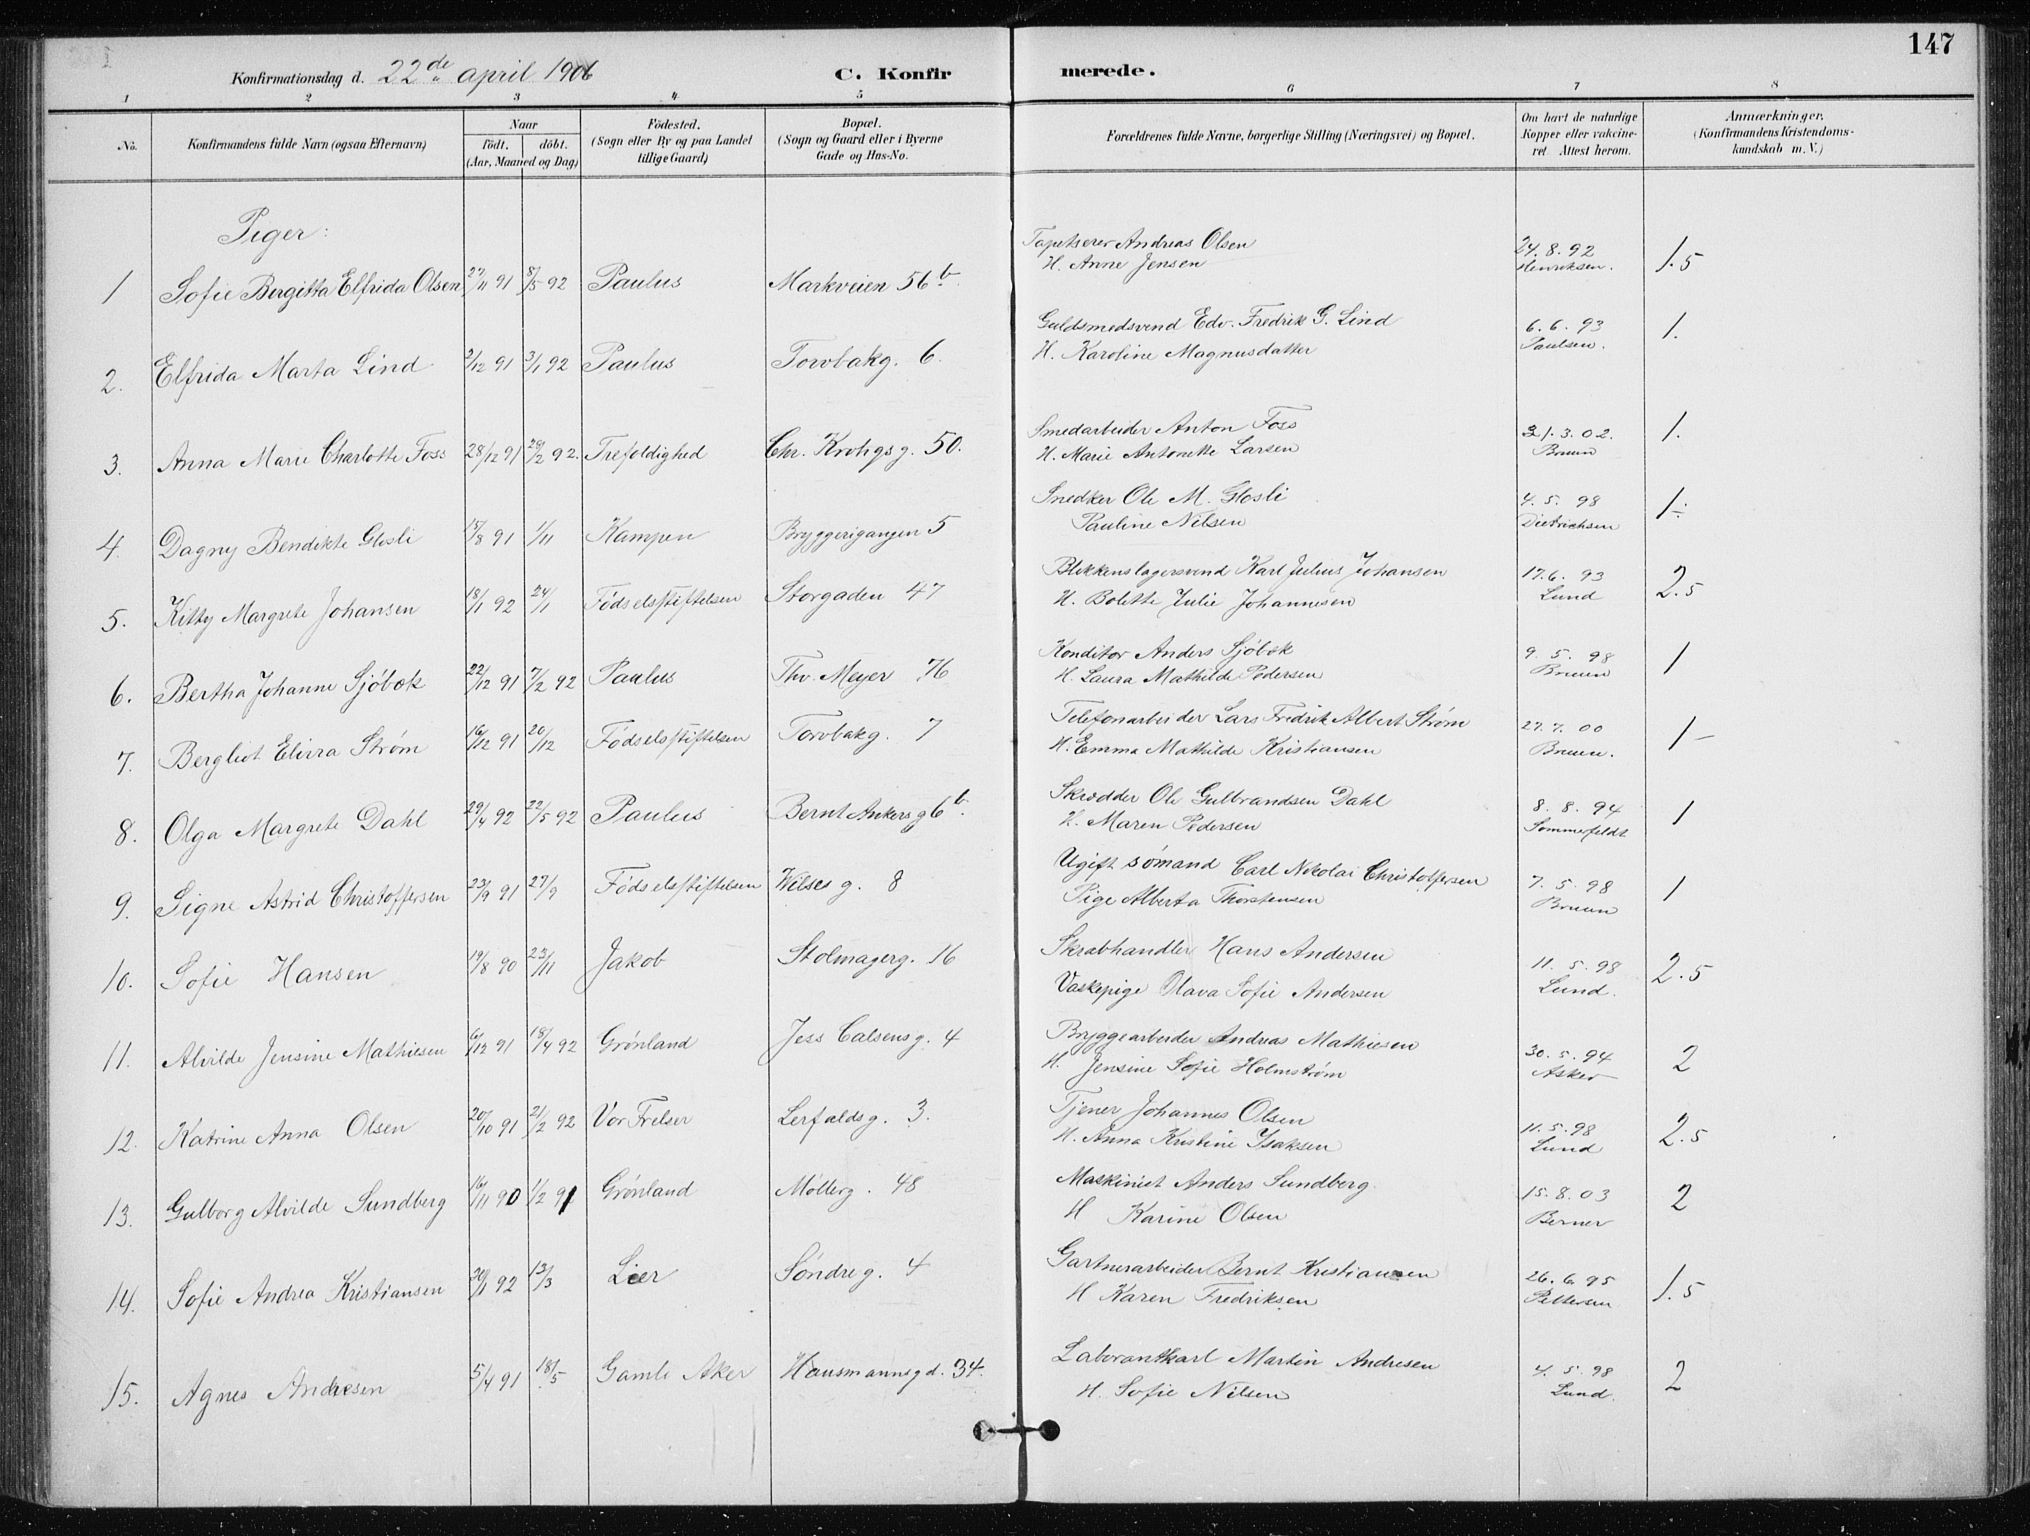 147
Konfirmationsdag d. 22de april 1906 C. Konfir merede.
1 2 3 4 5 6 7 8
No. Konfirmandens fulde Navn (ogsaa Efternavn) Naar født. døbt. (Aar, Maaned og Dag) Fødested. (Sogn eller By og paa Landet tillige Gaard) Bopæl. (Sogn og Gaard eller i Byerne Gade og Hus-No. Forældrenes fulde Navne, borgerlige Stilling (Næringsvei) og Bopæl. Om havt de naturlige Kopper eller vakcineret. Attest herom. Anmærkninger. (Konfirmandens Kristendomskundskab m. V.)
Piger:
Tapetserer Andreas Olsen 24.8.92
1 Sofie Bergitta Elfrida Olsen 27/11 91 8/5 92 Paulus Markveien 56b. H. Anne Jensen Henriksen. 1.5
Guldsmedsvend Edv. Fredrik G. Lind 6.6.93
2. Elfrida Marta Lind 2/12 91 3/1 92 Paulus Torvbakg. 6. H. Karoline Magnusdatter Paulsen. 1.
Smedarbeider Anton Foss 21.3.02.
3. Anna Marie Charlotte Foss 28/12 91 29/2 92. Trefoldighed Chr. Krohgsg. 50. H. Marie Antonette Larsen Bruun 1.
Snedker Ole M. Glosli 4.5.98
4. Dagny Bendikte Glosli 15/8 91 1/11 Kampen Bryggerigangen 5 Pauline Nilsen Dietrichsen 1÷
Blikkenslagersvend Karl Julius Johansen 17.6.93
5. Kitty Margrete Johansen 18/1 92 24/1 Fødselsstiftelsen Storgaden 47 H. Bolette Julie Johannesen Lund 2.5
Konditor Anders Sjöbok 9.5.98
6. Bertha Johanne Sjöbok 22/12 91 7/2 92 Paulus Thv. Meyer 76 H. Laura Mathilde Pedersen Bruun 1
Telefonarbeider Lars Fredrik Albert Strøm 27.7.00
7. Bergliot Elvira Strøm 16/12 91 20/12 Fødselsstiftelsen Torvbakg. 7 H. Emma Mathilde Kristiansen Bruun. 1-
Skrædder Ole Gulbrandsen Dahl 8.8.94
8. Olga Margrete Dahl 29/4 92 22/5 92 Paulus Bernt Ankersg 6b. H. Maren Pedersen Sommerfeldt 1
Ugift sømand Carl Nikolai Christoffersen 7.5.98
9. Signe Astrid Christoffersen 23/9 91 27/9 Fødselsstiftelsen Wilses g. 8 Pige Alberta Thorstensen Bruun 1
Skrabhandler Hans Andersen 11.5.98
10. Sofie Hansen 19/8 90 23/11 Jakob Stolmagerg. 16 Vaskepige Olava Sofie Andersen Lund. 2.5
Bryggearbeider Andreas Mathiesen 30.5.94
11. Alvilde Jensine Mathiesen 6/12 91 18/4 92 Grønland Jess Calsensg. 4 H. Jensine Sofie Holmstrøm Asker 2
Tjener Johannes Olsen 11.5.98
12. Katrine Anna Olsen 20/10 91 21/2 92 Vor Frelser Lerfaldsg. 3. H. Anna Kristine Isaksen Lund 2.5
Maskinist Anders Sundberg 15.8.03
13. Gulborg Alvilde Sundberg 16/11 90 1/2 91 Grønland Møllerg. 48 H Karine Olsen Berner 2
Gartnerarbeider Bernt Kristiansen 26.6.95
14. Sofie Andrea Kristiansen 20/1 92 13/3 Lier Søndreg. 4 H Karen Fredriksen Pettersen 1.5
Laborantkarl Martin Andresen 4.5.98
15. Agnes Andresen 5/4 91 18/5 Gamle Aker Hausmannsgd. 34. H. Sofie Nilsen Lund. 2